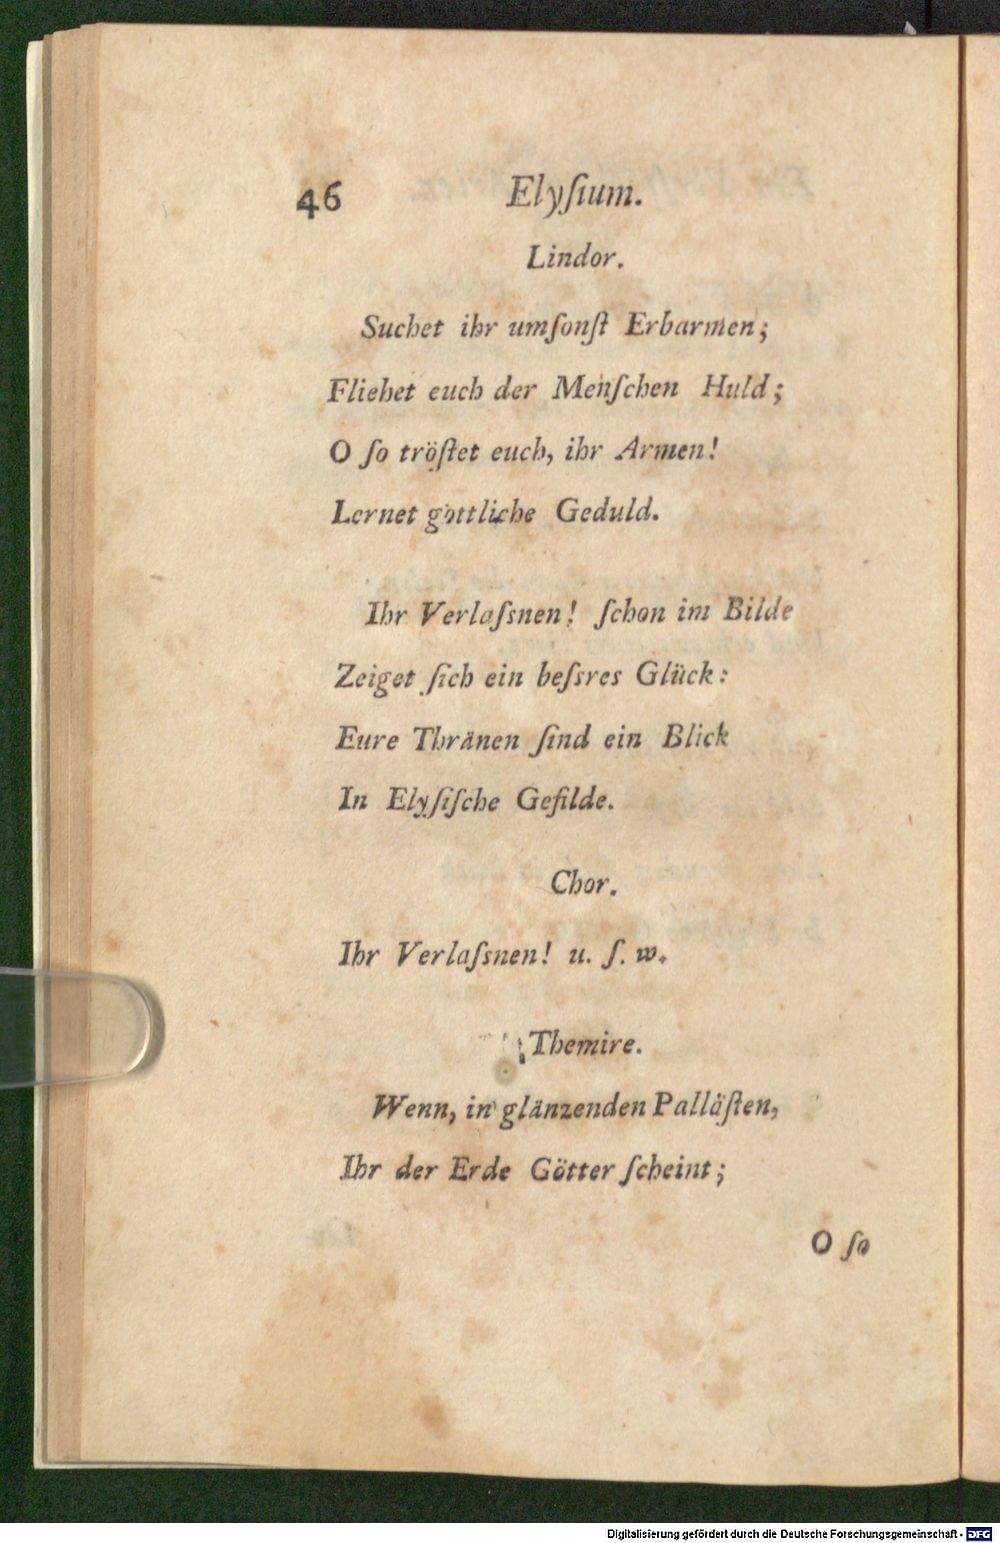 46 Elyſium.
Lindor.
Suchet ihr umſonſt Erbarmen;
Fliehet euch der Menſchen Huld;
O ſo tröſtet euch, ihr Armen!
Lernet göttliche Geduld.
Ihr Verlaſsnen! ſchon im Bilde
Zeiget ſich ein beſsres Glück:
Eure Thränen ſind ein Blick
In Elyſiſche Gefilde.
Chor.
Ihr Verlaſsnen! u. ſ. w.
Themire.
Wenn, in glänzenden Palläſten,
Ihr der Erde Götter ſcheint;
O ſo
Digitalisierung gefördert durch die Deutsche Forschungsgemeinschaft - DFG